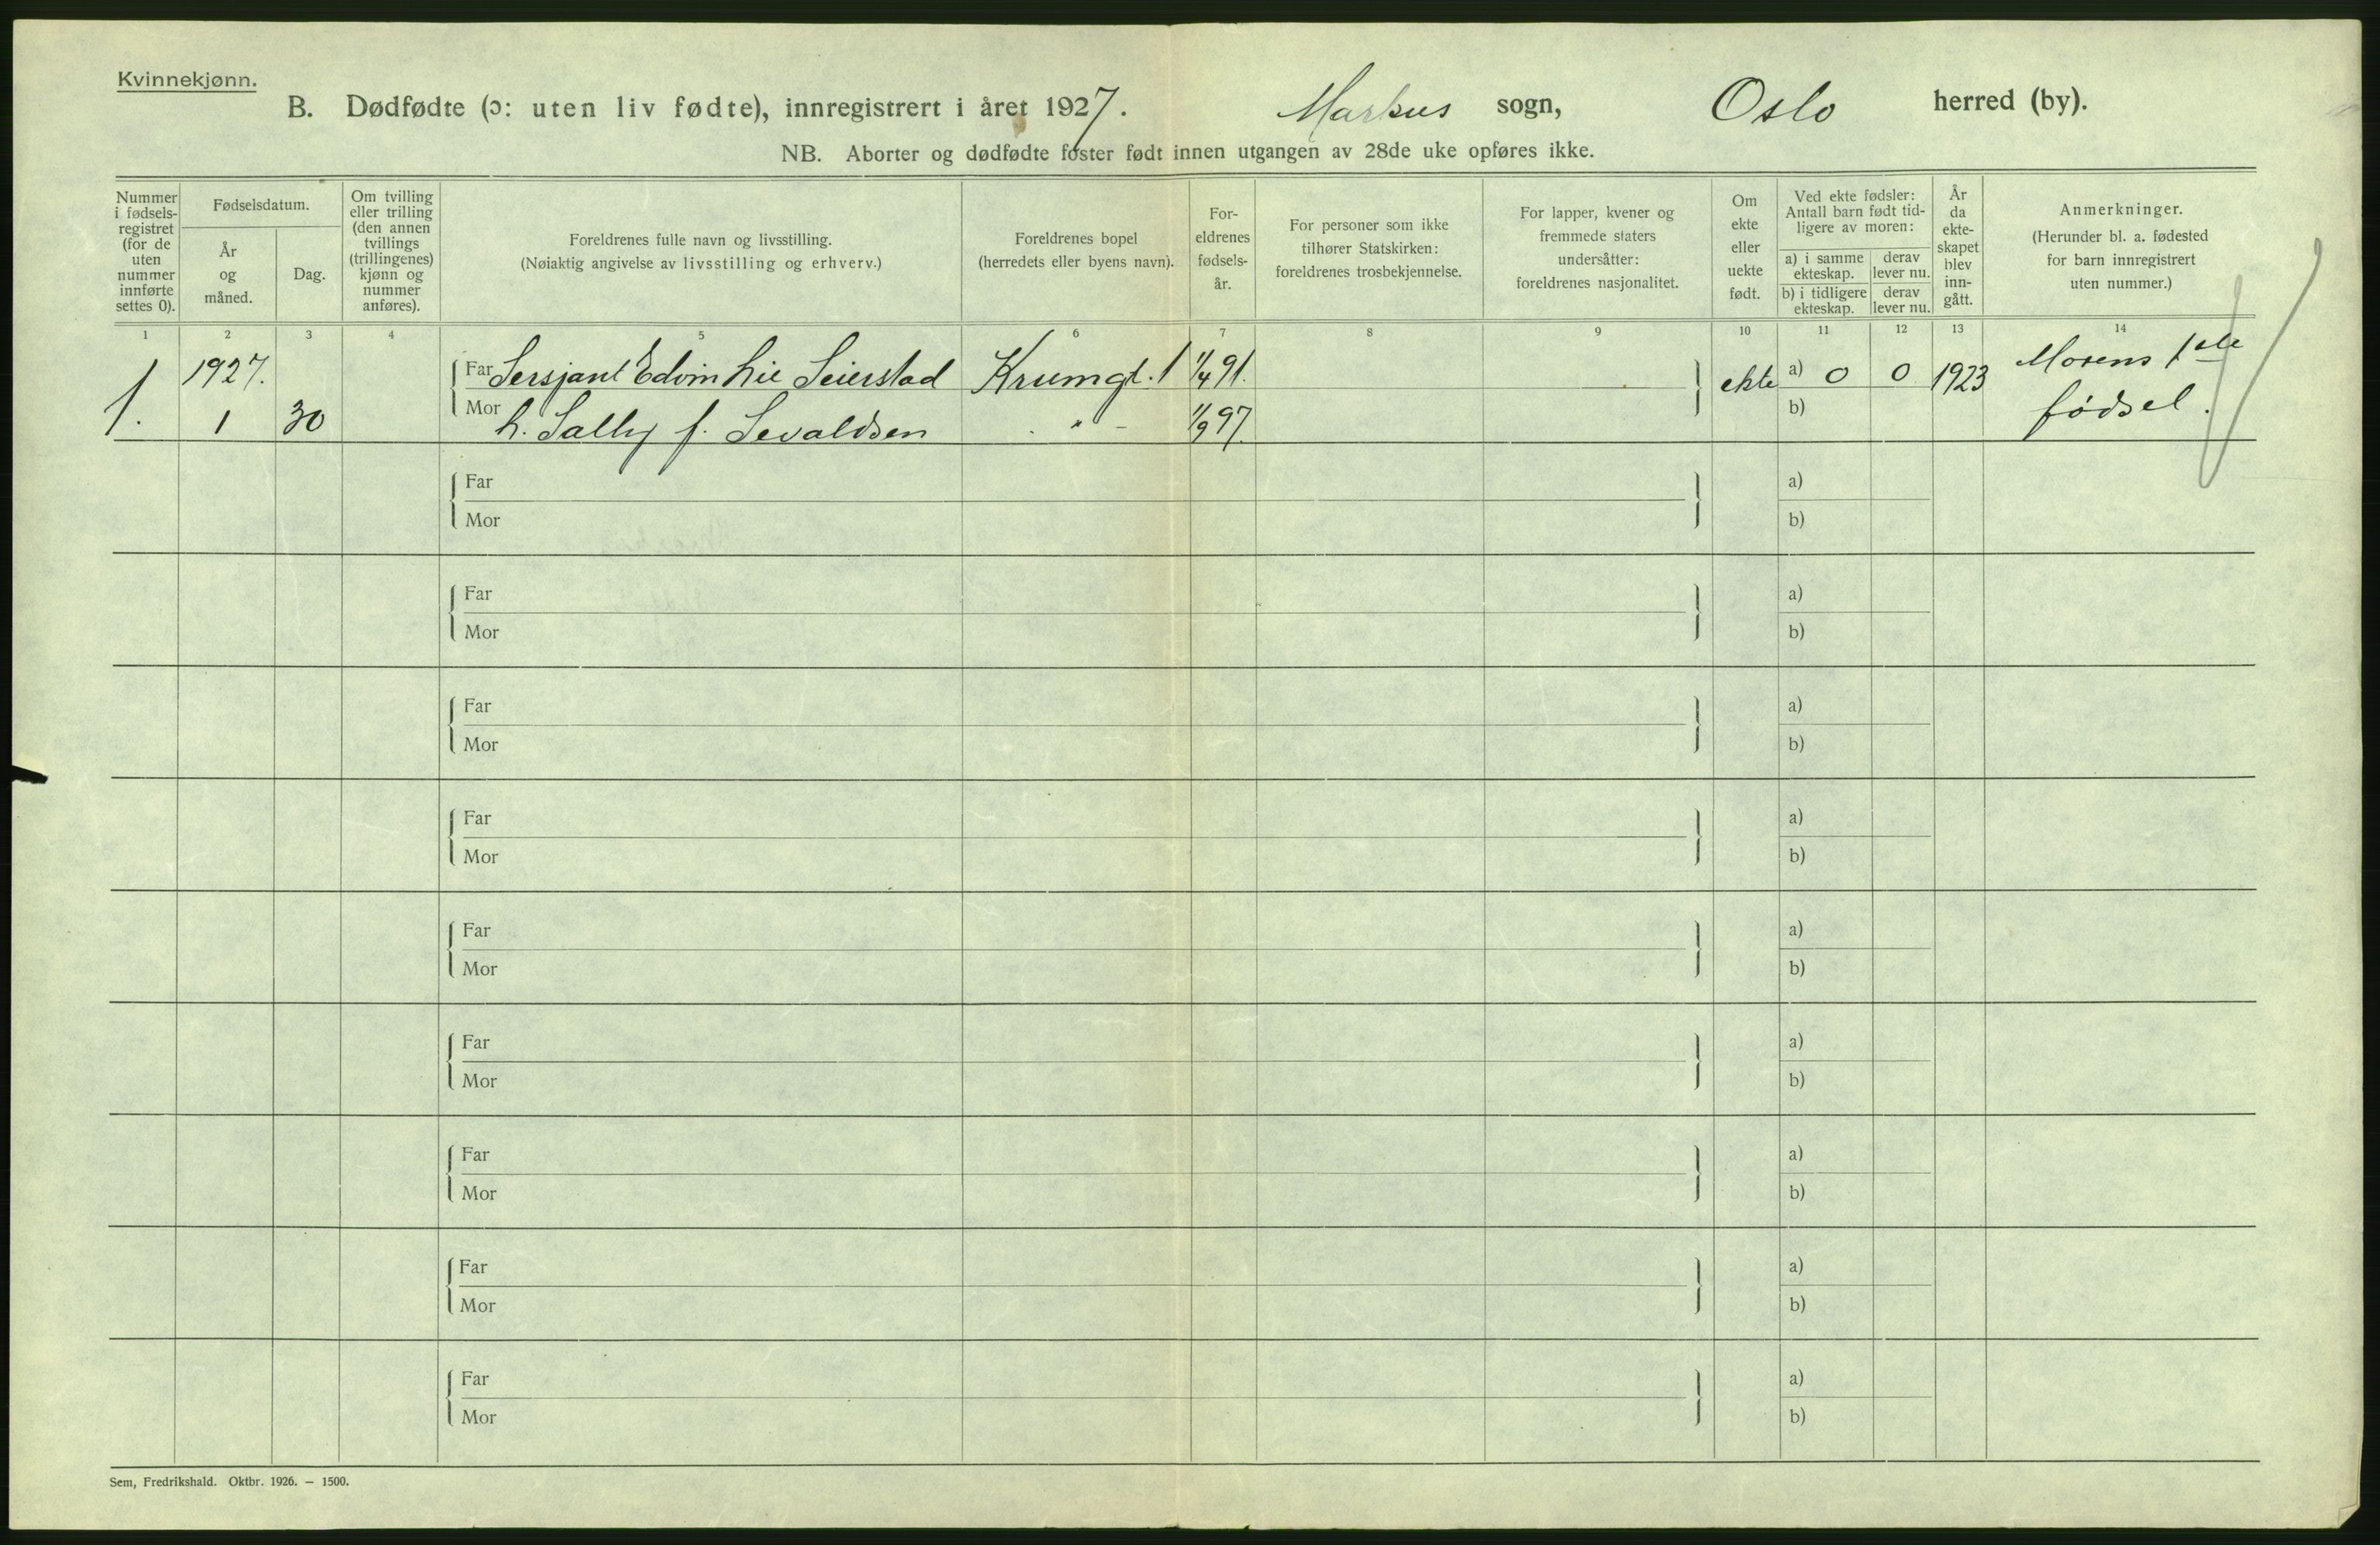 Kvinnekjønn.
B. Dødfødte (ɔ: uten liv fødte), innregistrert i året 1927. Markus sogn, Oslo herred (by).
NB. Aborter og dødfødte foster født innen utgangen av 28de uke opføres ikke.
Nummer i fødsels-registret (for de uten nummer innførte settes 0).
Fødselsdatum.
År og måned.
Dag.
Om tvilling eller trilling (den annen tvillings (trillingenes) kjønn og nummer anføres).
Foreldrenes fulle navn og livsstilling.
(Nøiaktig angivelse av livsstilling og erhverv.)
Foreldrenes bopel
(herredets eller byens navn).
For-eldrenes fødsels-år.
For personer som ikke tilhører Statskirken: foreldrenes trosbekjennelse.
For lapper, kvener og fremmede staters undersåtter: foreldrenes nasjonalitet.
Om ekte eller uekte født.
Ved ekte fødsler: Antall barn født tid-ligere av moren:
a) i samme ekteskap.
derav lever nu.
b) i tidligere ekteskap.
derav lever nu.
År da ekte-skapet blev inn-gått.
Anmerkninger.
(Herunder bl. a. fødested for barn innregistrert uten nummer.)
1 2 3 4 5 6 7 8 9 10 11 12 13 14
1927. Far Sersjant Edvin Lie Seierstad Krumgt. 1 1/4 91. ekte a) 0 0 1923 Morens 1ste
1. 1 30 Mor h. Sally f. Sevaldsen - " - 1/9 97. b) fødsel.
Far a)
Mor b)
Far a)
Mor b)
Far a)
Mor b)
Far a)
Mor b)
Far a)
Mor b)
Far a)
Mor b)
Far a)
Mor b)
Far a)
Mor b)
Far a)
Mor b)
Sem, Fredrikshald. Oktbr. 1926. — 1500.